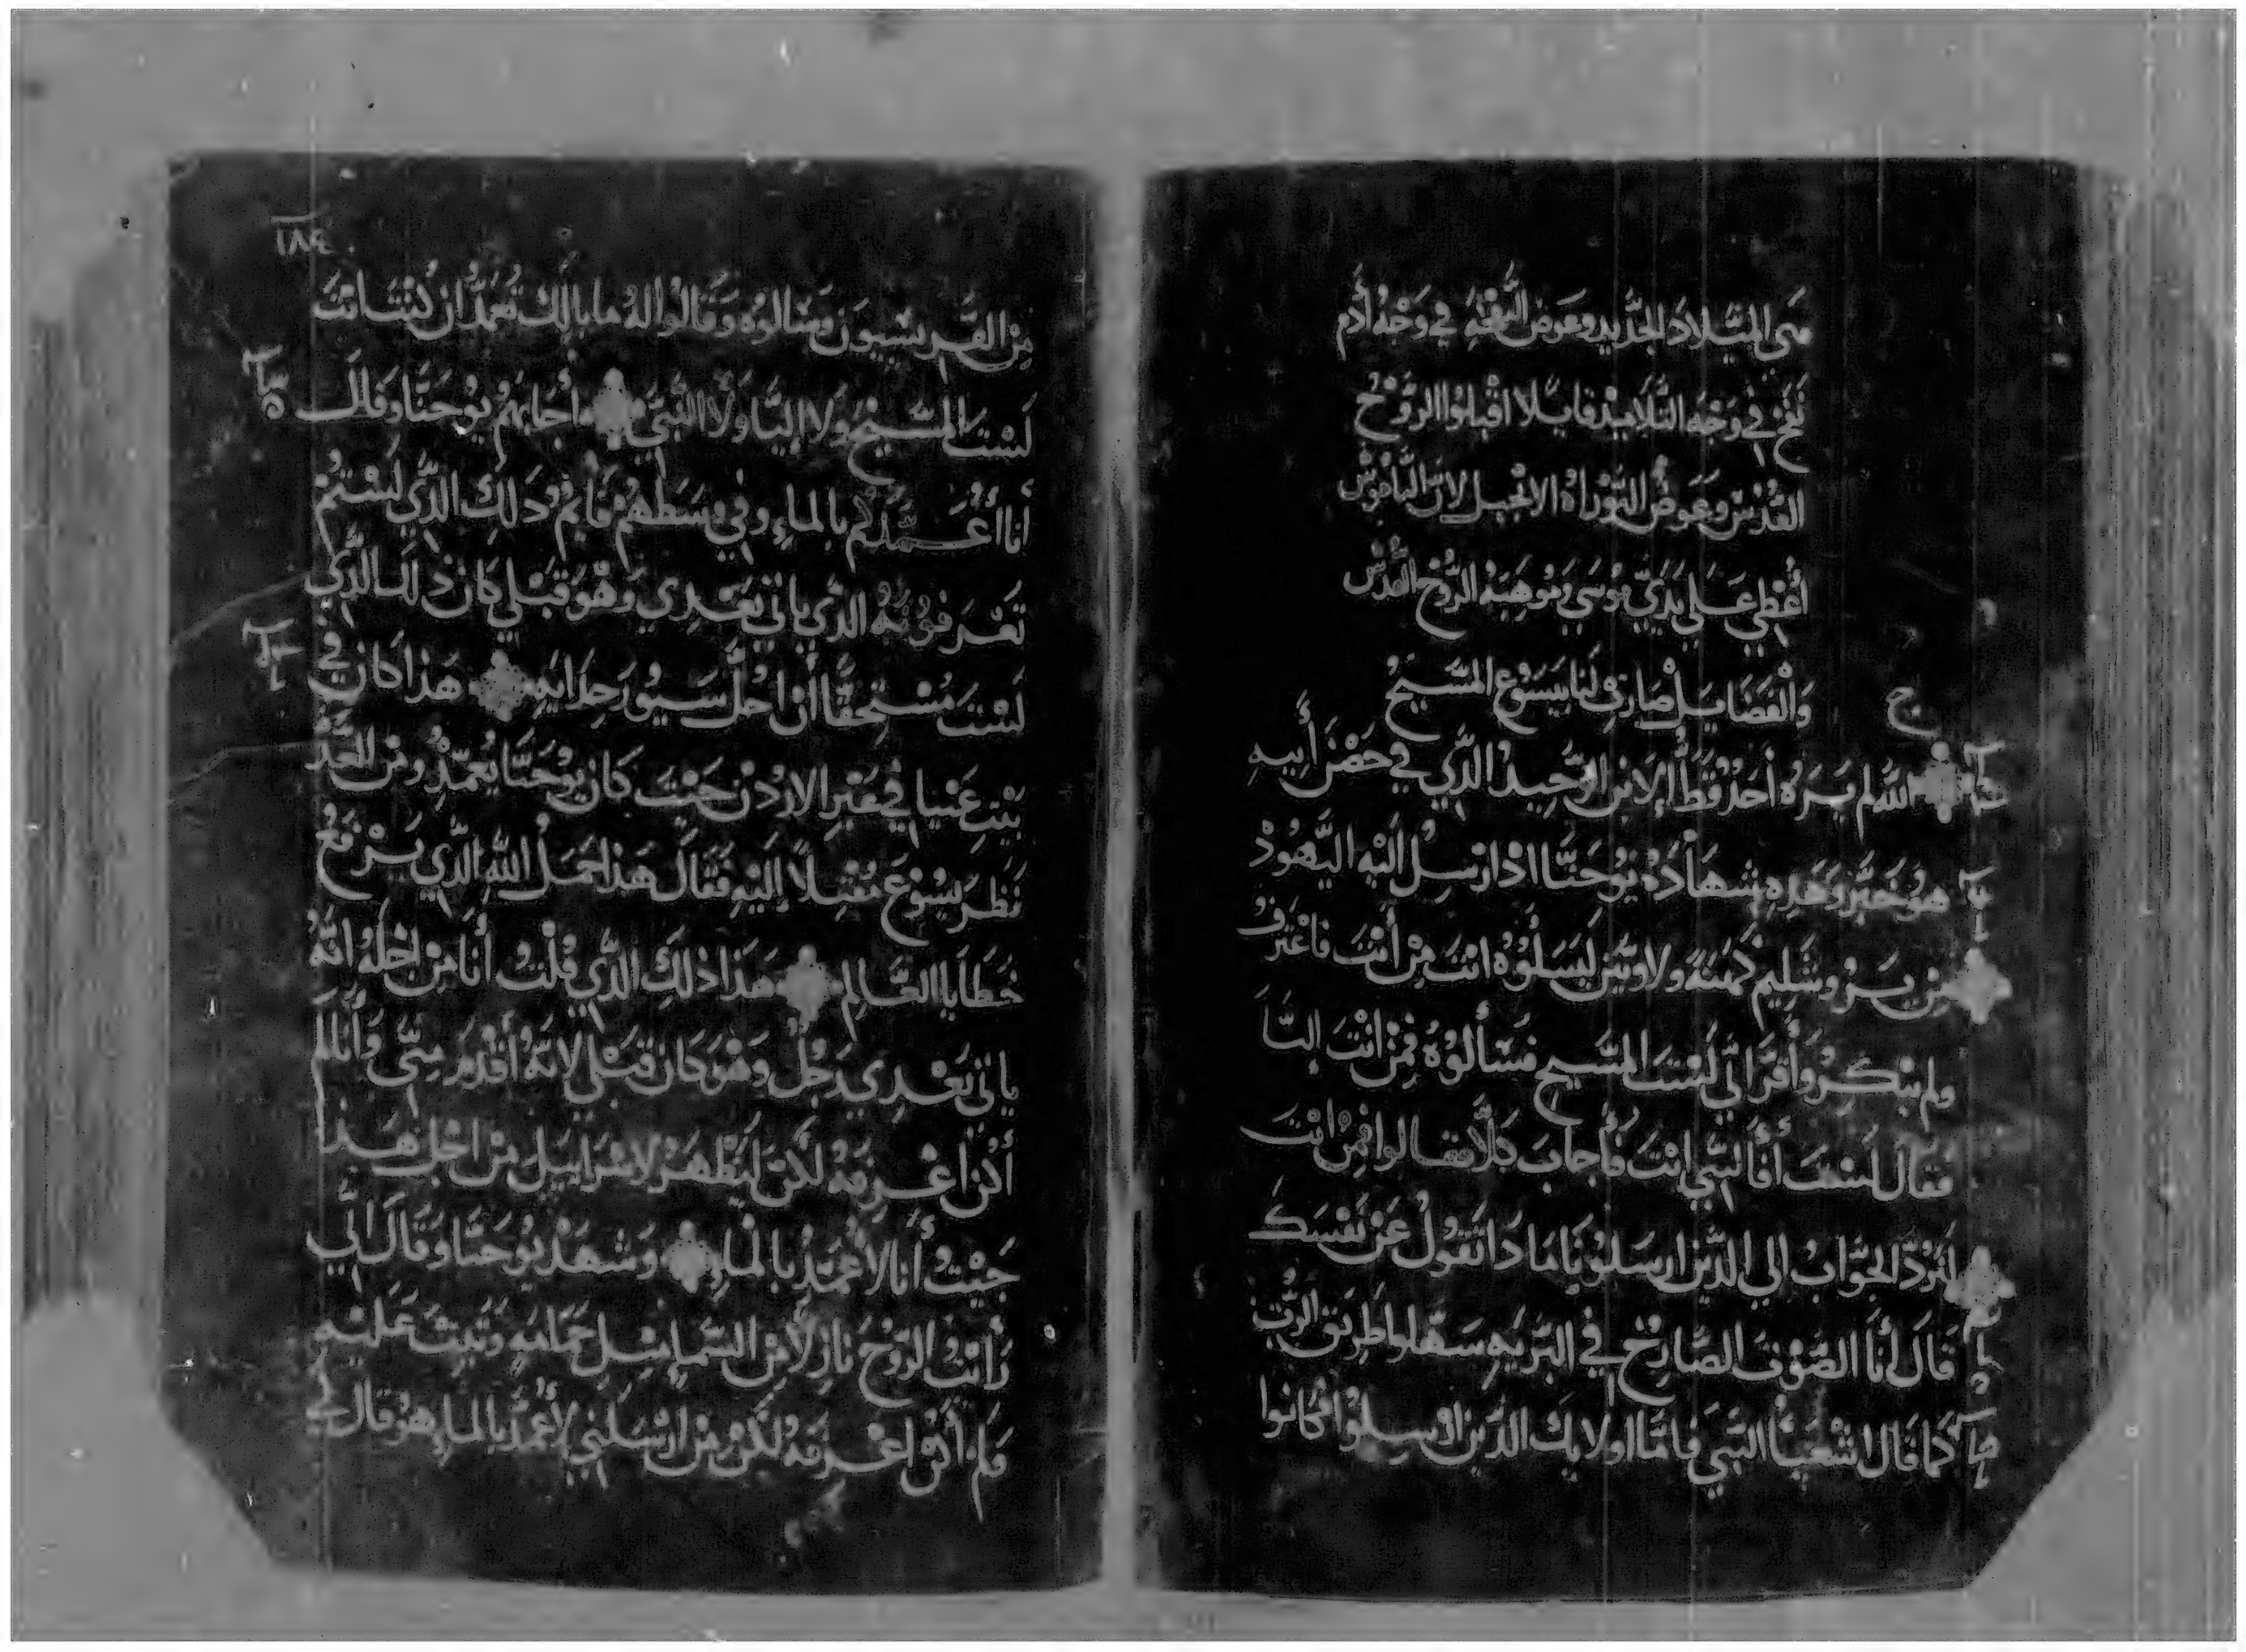 متي الميلاد الجديد وعوض النفخه في وجه أدم
نفخ في وجه التلاميذ قايلا اقبلوا الروح
القدس وعوض التوراه الانجيل لان الناموس
أعطي على يدي موسي وموهبة الروح القدس
والفضايل صارت لنا بيسوع المسيح
ج
الله لم يره أحد قط الابن الوحيد الذي في حضن أبيه
هو خبر وهذه شهادة يوحنا اذ ارسل اليه اليهود
من يروشليم كهنة ولاويين ليسلوه انت من أنت فاعترف
ولم ينكر وأقر اني لست المسيح فسألوه فمن انت إليا
فقال لست أنا النبي انت فأجاب كلا فقالوا فمن انت
لنرد الجواب الي الذين ارسلونا ماذا تقول عن نفسك
قال أنا الصوت الصارخ في البريه سهلوا طريق الرب
كما قال اشعيا النبي فاما اولايك الذين ارسلوا فكانوا
١٨٤
من الفريسيون وسالوه وقالوا له ما بالك تعمد ان كنت انت
لست المسيح ولا إليا ولا النبي أجابهم يوحنا وقال
أنا أعمدكم بالماء وفي وسطهم قايم ذلك الذي لستم
تعرفونه الذي ياتي بعدي وهو قبلي كان ذلك الذي
لست مستحقا أن احل سيور حذايه هذا كان في
بيت عنيا في عبر الاردن حيث كان يوحنا يعمد ومن الغد
نظر يسوع مقبلا إليه فقال هذا حمل الله الذي يرفع
خطايا العالم هذا ذلك الذي قلت أنا من اجله انه
ياتي بعدي رجل وهو كان قبلي لانه أقدم مني وأنا لم
أكن اعرفه لكن ليظهر لاسراييل من اجل هذا
جيت أنا لأعمد بالماء وشهد يوحنا وقال اني
رايت الروح نازلا من السماء مثل حمامه وثبت عليه
ولم أكن اعرفه لكن من ارسلني لأعمد بالماء هو قال لي